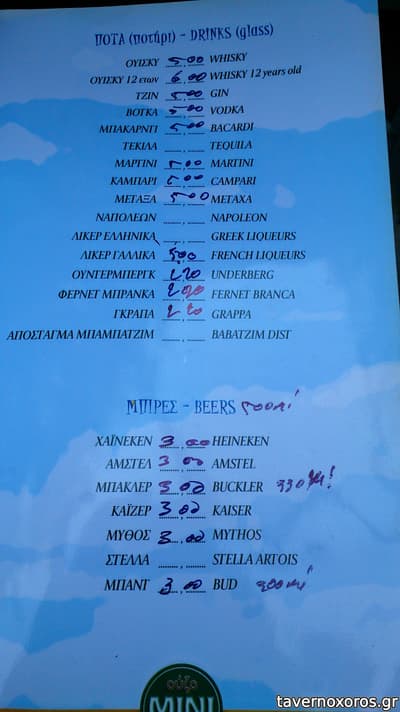 ΠΟΤΑ (ποτήρι) - DRINKS (glass)
ΟΥΙΣΚΥ 5,00 WHISKY
ΟΥΙΣΚΥ 12 ετων 6,00 WHISKY 12 years old
ΤΖΙΝ 5,00 GIN
ΒΟΤΚΑ 5,00 VODKA
ΜΠΑΚΑΡΝΤΙ 5,00 BACARDI
ΤΕΚΙΛΑ ....,.... TEQUILA
ΜΑΡΤΙΝΙ 5,00 MARTINI
ΚΑΜΠΑΡΙ 5,00 CAMPARI
ΜΕΤΑΞΑ 5,00 METAXA
ΝΑΠΟΛΕΩΝ ....,.... NAPOLEON
ΛΙΚΕΡ ΕΛΛΗΝΙΚΑ ....,.... GREEK LIQUEURS
ΛΙΚΕΡ ΓΑΛΛΙΚΑ 5,00 FRENCH LIQUEURS
ΟΥΝΤΕΡΜΠΕΡΓΚ UNDERBERG
ΦΕΡΝΕΤ ΜΠΡΑΝΚΑ FERNET BRANCA
ΓΚΡΑΠΑ GRAPPA
ΑΠΟΣΤΑΓΜΑ ΜΠΑΜΠΑΤΖΙΜ ....,.... BABATZIM DIST
ΜΠΙΡΕΣ - BEERS
ΧΑΪΝΕΚΕΝ 3,00 HEINEKEN
ΑΜΣΤΕΛ 3,00 AMSTEL
ΜΠΑΚΛΕΡ 3,00 BUCKLER
ΚΑΪΖΕΡ 3,00 KAISER
ΜΥΘΟΣ 3,00 MYTHOS
ΣΤΕΛΛΑ ....,.... STELLA ARTOIS
ΜΠΑΝΤ 3,00 BUD
ούζο
MINI
tavernoxoros.gr